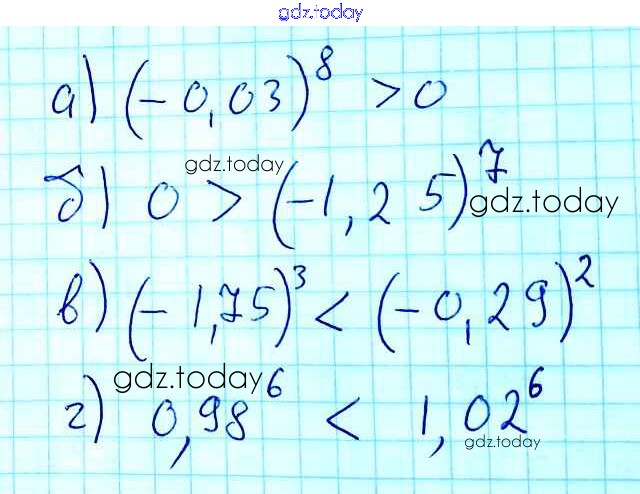 gdz.today
а) (-0,03)⁸ > 0
gdz.today
б) 0 > (-1,25)⁷
gdz.today
в) (-1,75)³ < (-0,29)²
gdz.today
г) 0,98⁶ < 1,02⁶
gdz.today